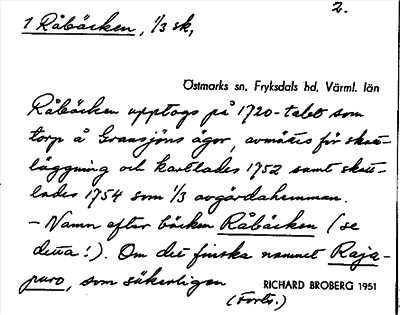 2.
1 Råbäcken, 1/3 sk,
Östmarks sn. Fryksdals hd. Värml. län
Råbäcken upptogs på 1720-talet som
torp å Gransjöns ägor, avmättes för skatt-
läggning och kartlades 1752 samt skatt-
lades 1754 som 1/3 avgärdahemman.
- Namn efter bäcken Råbäcken (se
detta!). Om det finska namnet Raja-
puro, som säkerligen
RICHARD BROBERG 1951
(Forts.)